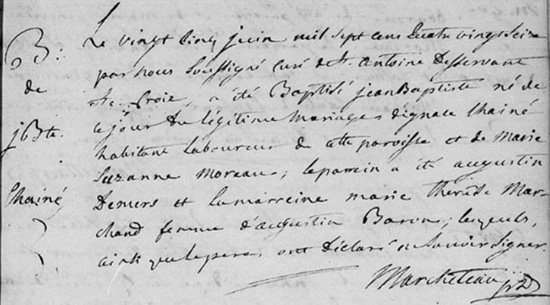 B.
de
jBte
Chainé
Le vingt cinq juin mil sept cens quatre vingt seize
par nous soussigné curé de st. antoine Desservant
ste. Croix, a été Baptisé jean Baptiste né de
ce jour du légitime mariage dignace Chainé
habitant laboureur de cette paroisse et de marie
Suzanne Moreau; le parein a été augustin
Demers et la mareine marie therese Mar-
chand femme d'augustin Baron; lesquels,
ainsi que le pere, ont déclaré ne savoir signer.
Marcheteau ptre